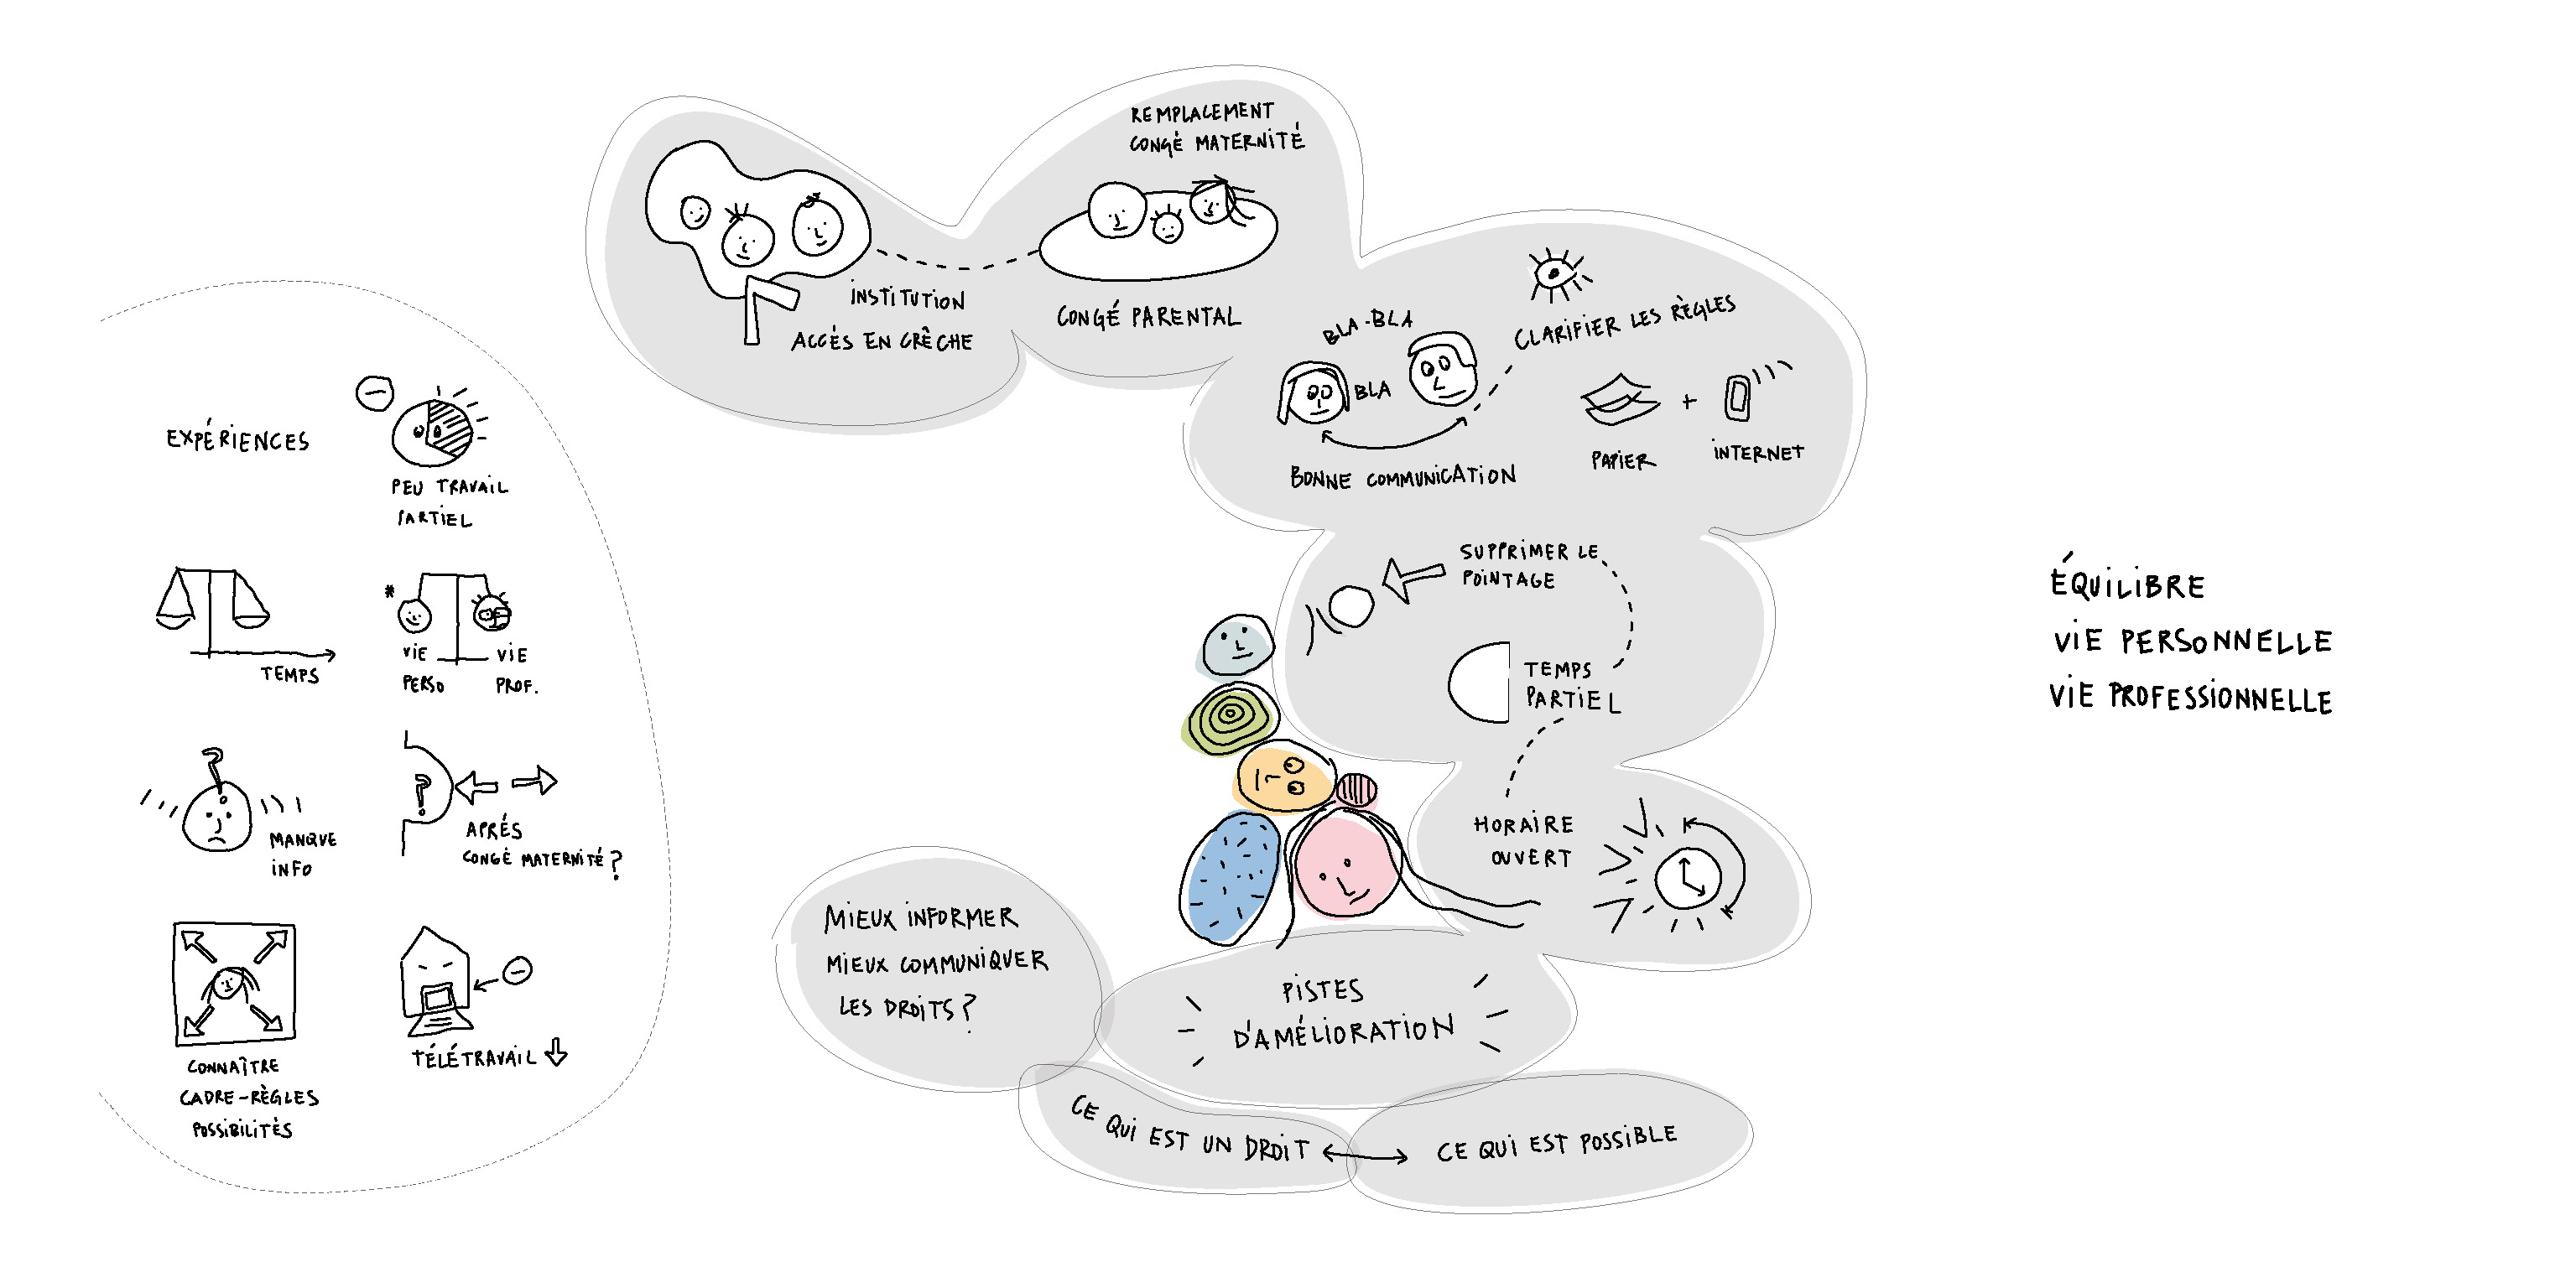 EXPÉRIENCES
PEU TRAVAIL
PARTIEL
TEMPS
VIE
PERSO
VIE
PROF.
MANQUE
INFO
APRÉS
CONGÉ MATERNITÉ ?
CONNAÎTRE
CADRE-RÈGLES
POSSIBILITÉS
TÉLÉTRAVAIL
INSTITUTION
ACCÉS EN CRÊCHE
REMPLACEMENT
CONGÉ MATERNITÉ
CONGÉ PARENTAL
BLA-BLA
BLA
BONNE COMMUNICATION
CLARIFIER LES RÈGLES
PAPIER
+
INTERNET
SUPPRIMER LE
POINTAGE
TEMPS
PARTIEL
HORAIRE
OUVERT
MIEUX INFORMER
MIEUX COMMUNIQUER
LES DROITS ?
PISTES
D'AMÉLIORATION
CE QUI EST UN DROIT
CE QUI EST POSSIBLE
ÉQUILIBRE
VIE PERSONNELLE
VIE PROFESSIONNELLE